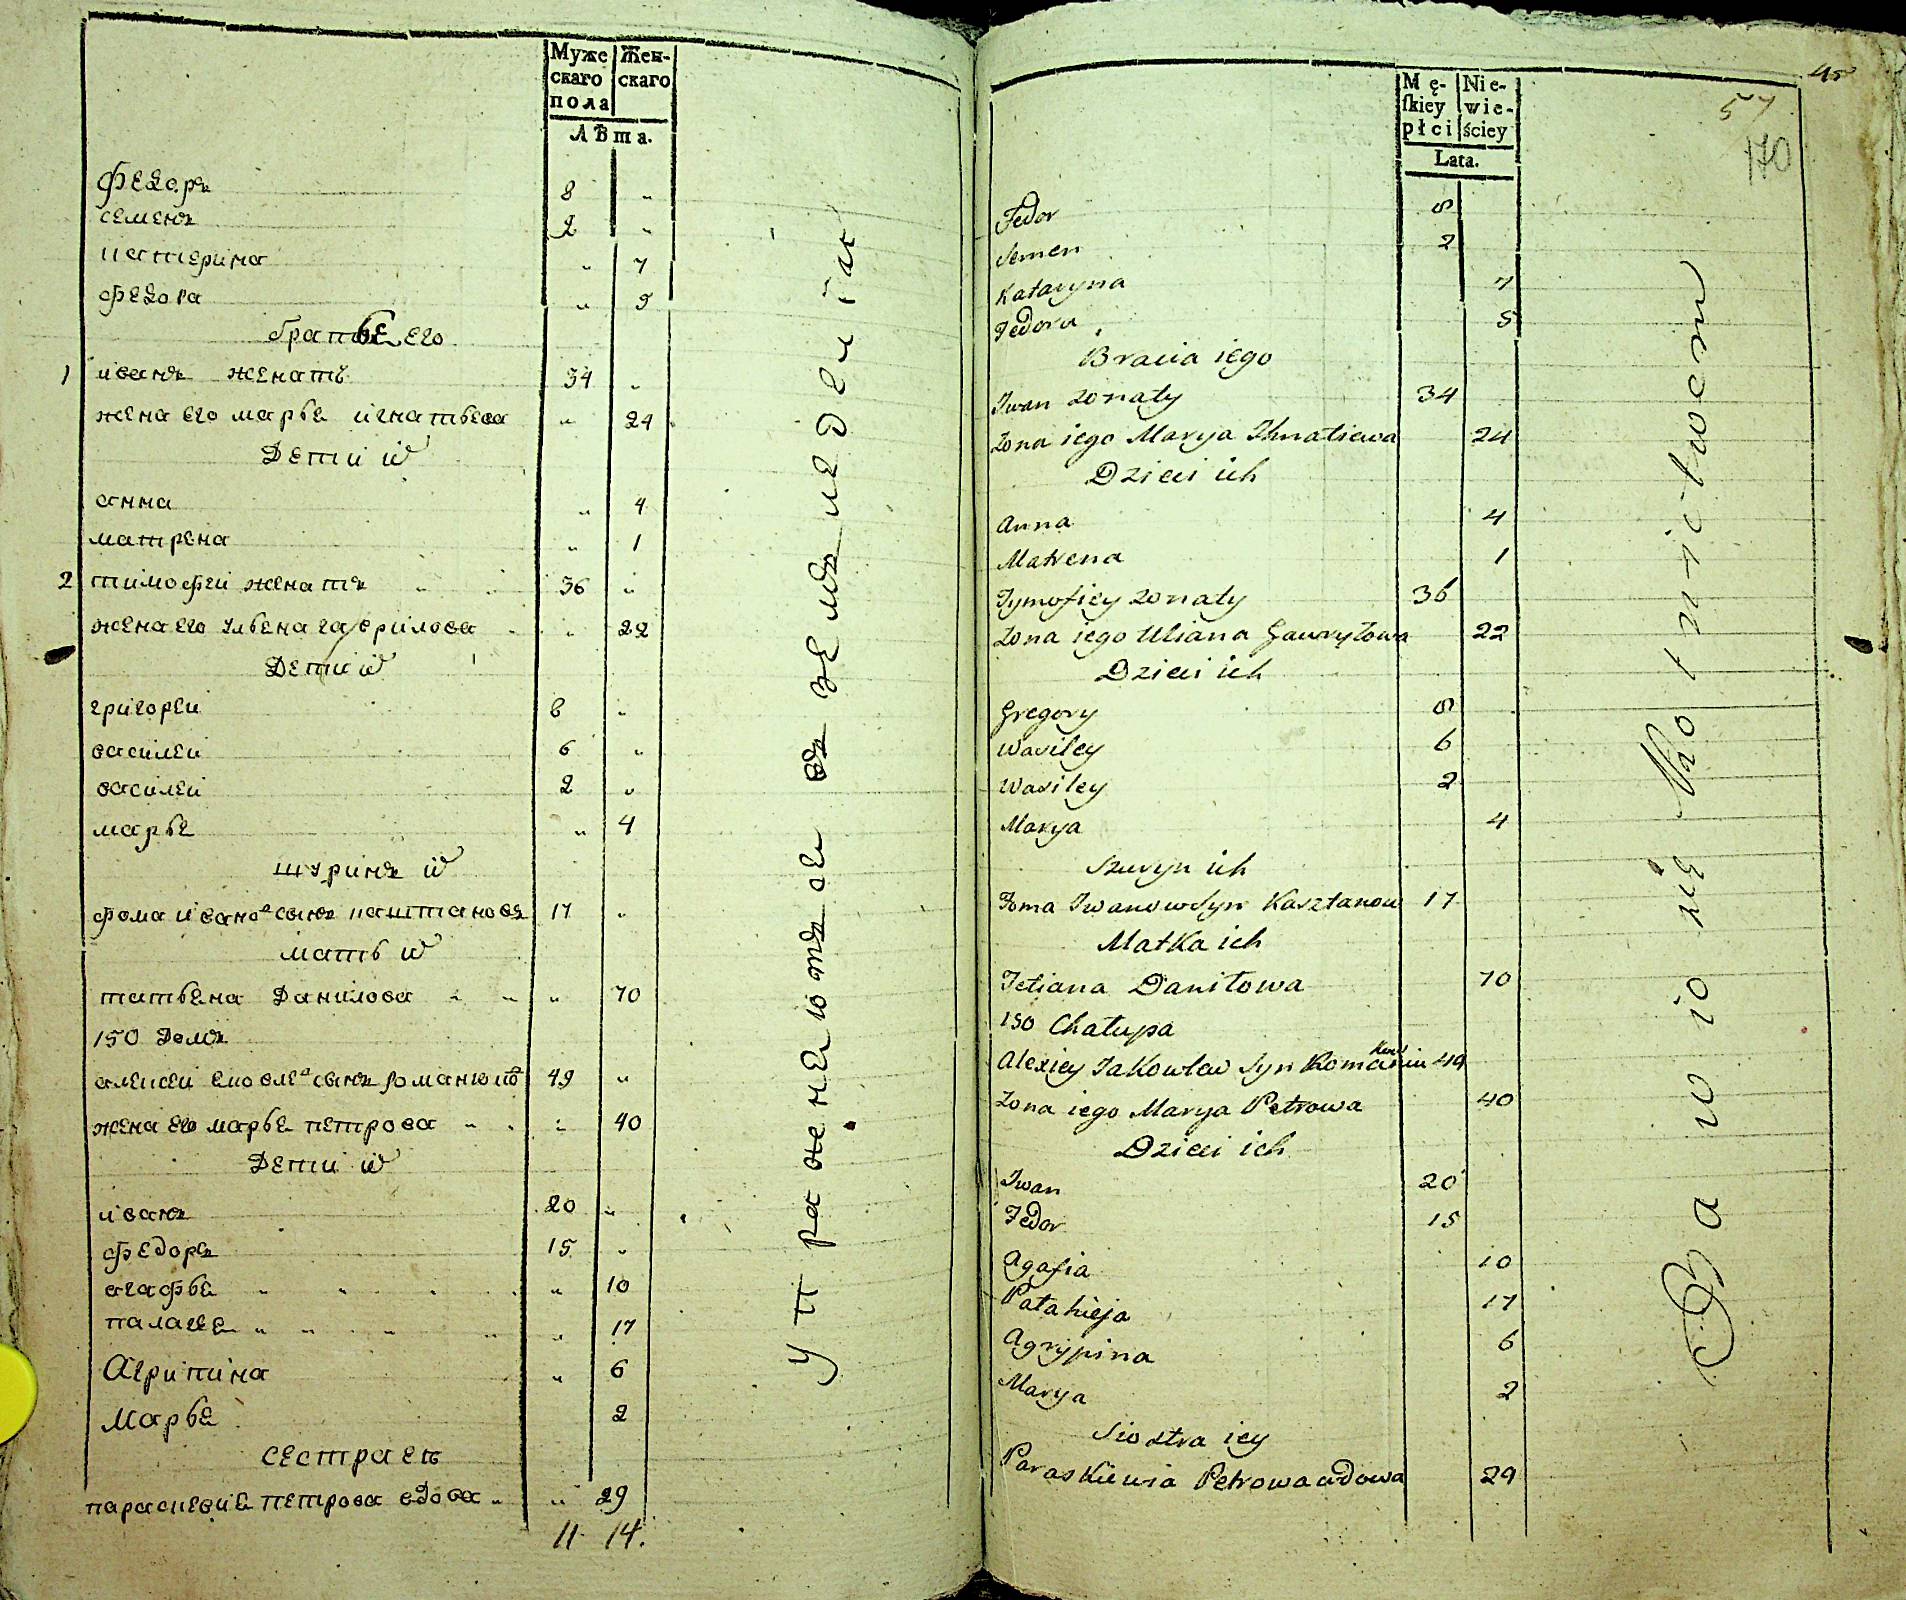 Муже
скаго
пола
Жен-
скаго
Лѣта.
Федоръ 8 „
семенъ 2 „
катерина „ 7
федора „ 5
братье его
1 иванъ женатъ 34 „
жена его марье игнатьева „ 24
Дети их
анна „ 4
матрена „ 1
2 тимофей женатъ 36 „
жена его ульена гаврилова „ 22
Дети их
григорей 8 „
василей 6 „
василей 2 „
марье „ 4
шуринъ их
фома иванов сынъ каштановъ 17 „
мать их
татьена Данилова „ 70
150 Домъ
алексей яковлев сынъ романюков 49 „
жена его марье петрова „ 40
Дети их
иванъ 20 „
федоръ 15 „
агафье „ 10
палагее „ 17
Агрипина „ 6
Марье 2
сестра ея
параскевие петрова вдова „ „ 29
11 14.
Упражняютъся въ земледелїи
45
57
170
Mę-
skiey
płci
Nie-
wie-
ściey
Lata.
Fedor 8
Semen 2
Kataryna 7
Fedora 5
Bracia iego
Iwan zonaty 34
Zona iego Marya Ihnatiewa 24
Dzieci ich
Anna 4
Matrena 1
Tymofiey zonaty 36
Zona iego Uliana Gawryłowa 22
Dzieci ich
Gregory 8
Wasiley 6
Wasiley 2
Marya 4
Szuryn ich
Foma Iwanow Syn Kasztanow 17
Matka ich
Tetiana Daniłowa 70
150 Chałupa
Alexiey Jakowlew Syn 49
Zona iego Marya Petrowa 40
Dzieci ich
Iwan 20
Fedor 15
Agafia 10
Pałahieja 17
Agrypina 6
Marya 2
Siostra iey
Paraskiewia Petrowa wdowa 29
Bawio się Rolnictwem